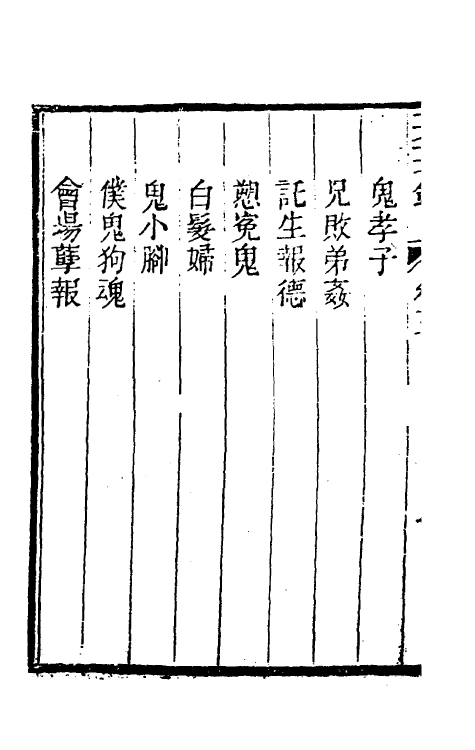 鬼孝子
兄敗弟姦
託生報德
愬寃鬼
白髮婦
鬼小腳
僕鬼狗魂
會場孽報